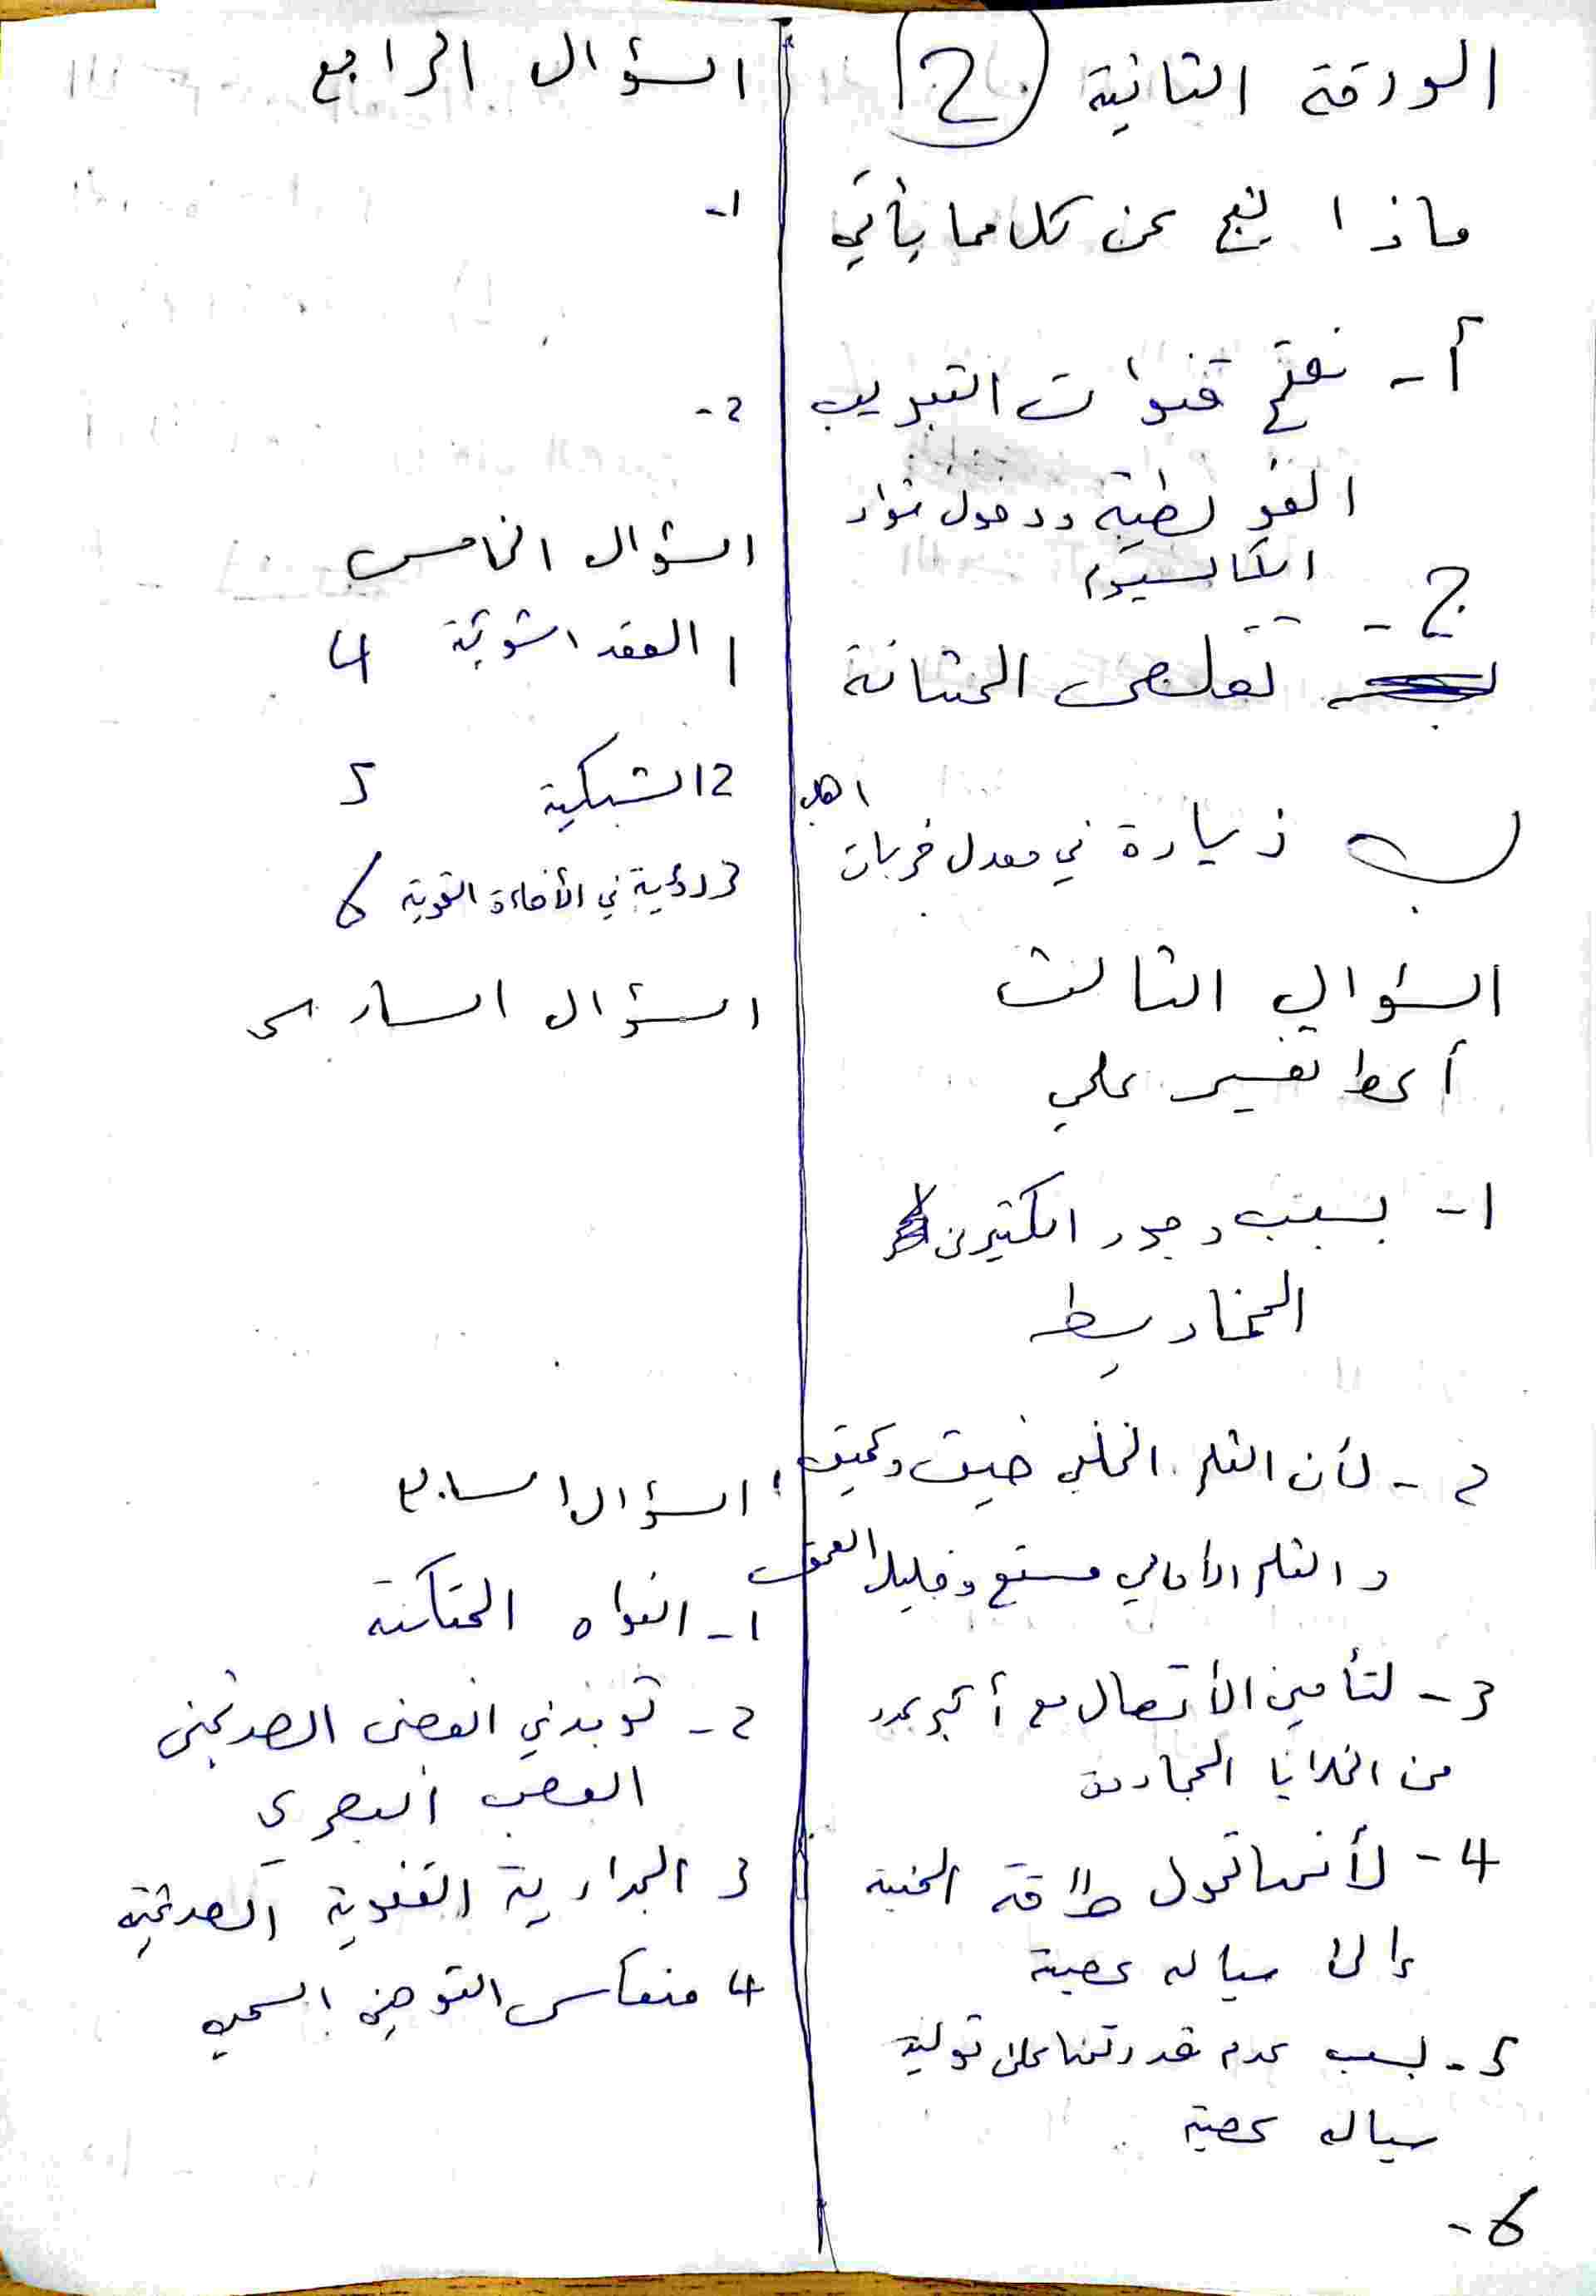 الورقة الثانية 2
ماذا ينتج عن كل مما يأتي
أ- نفتح قنوات التبويب
الفولطية ودخول شوارد
الكالسيوم
ج-
تقلص المثانة
ب زيادة في معدل ضربات
القلب
السؤال الثالث
أعط تفسير علمي
1- بسبب وجود الكثير من
المخاريط
2- لأن الثلم الخلفي ضيق وعميق
و الثلم الأمامي متسع وقليل العمق
3- لتأمين الأتصال مع أكبر عدد
من الخلايا المجاورة
4- لأنها تحول طاقة المنبه
إلى سيالة عصبية
5- بسبب عدم قدرتها على توليد
سيالة عصبية
6-
السؤال الرابع
1-
2-
السؤال الخامس
1 العقد الشوكية 4
2 الشبكية 5
3 رؤية في الأضاءة القوية 6
السؤال السادس
السؤال السابع
1- النواة المتكئة
2- توجد في الفص الصدغي
العصب البصري
3 الجدارية القفوية الصدغية
4 منعكس التوجيه السمعي